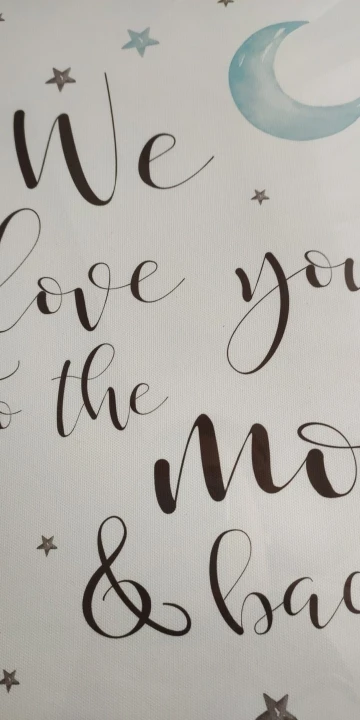 We
love you
to the
mo
& bac